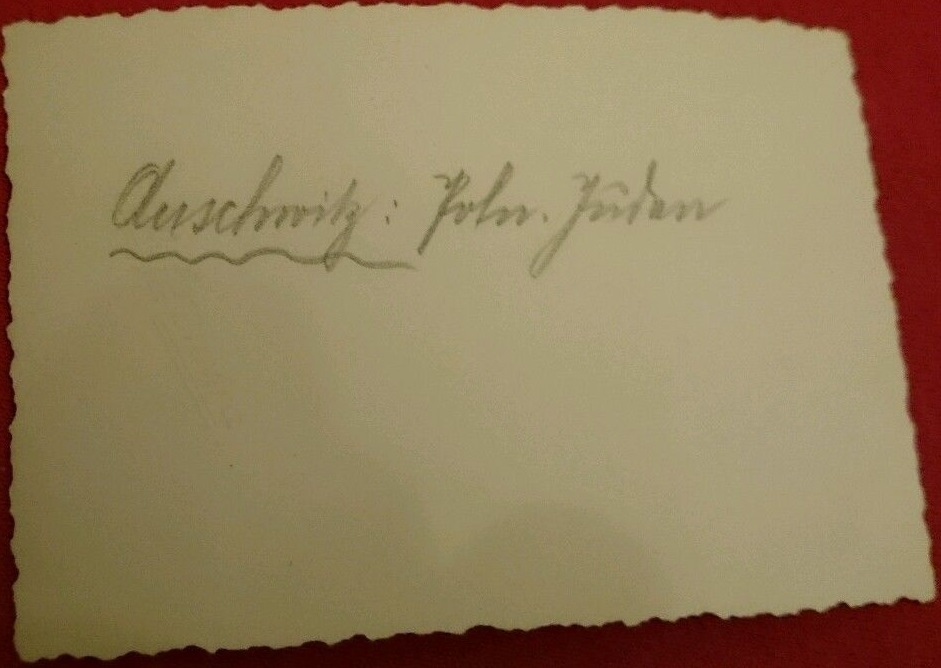 Auschwitz: Poln. Juden